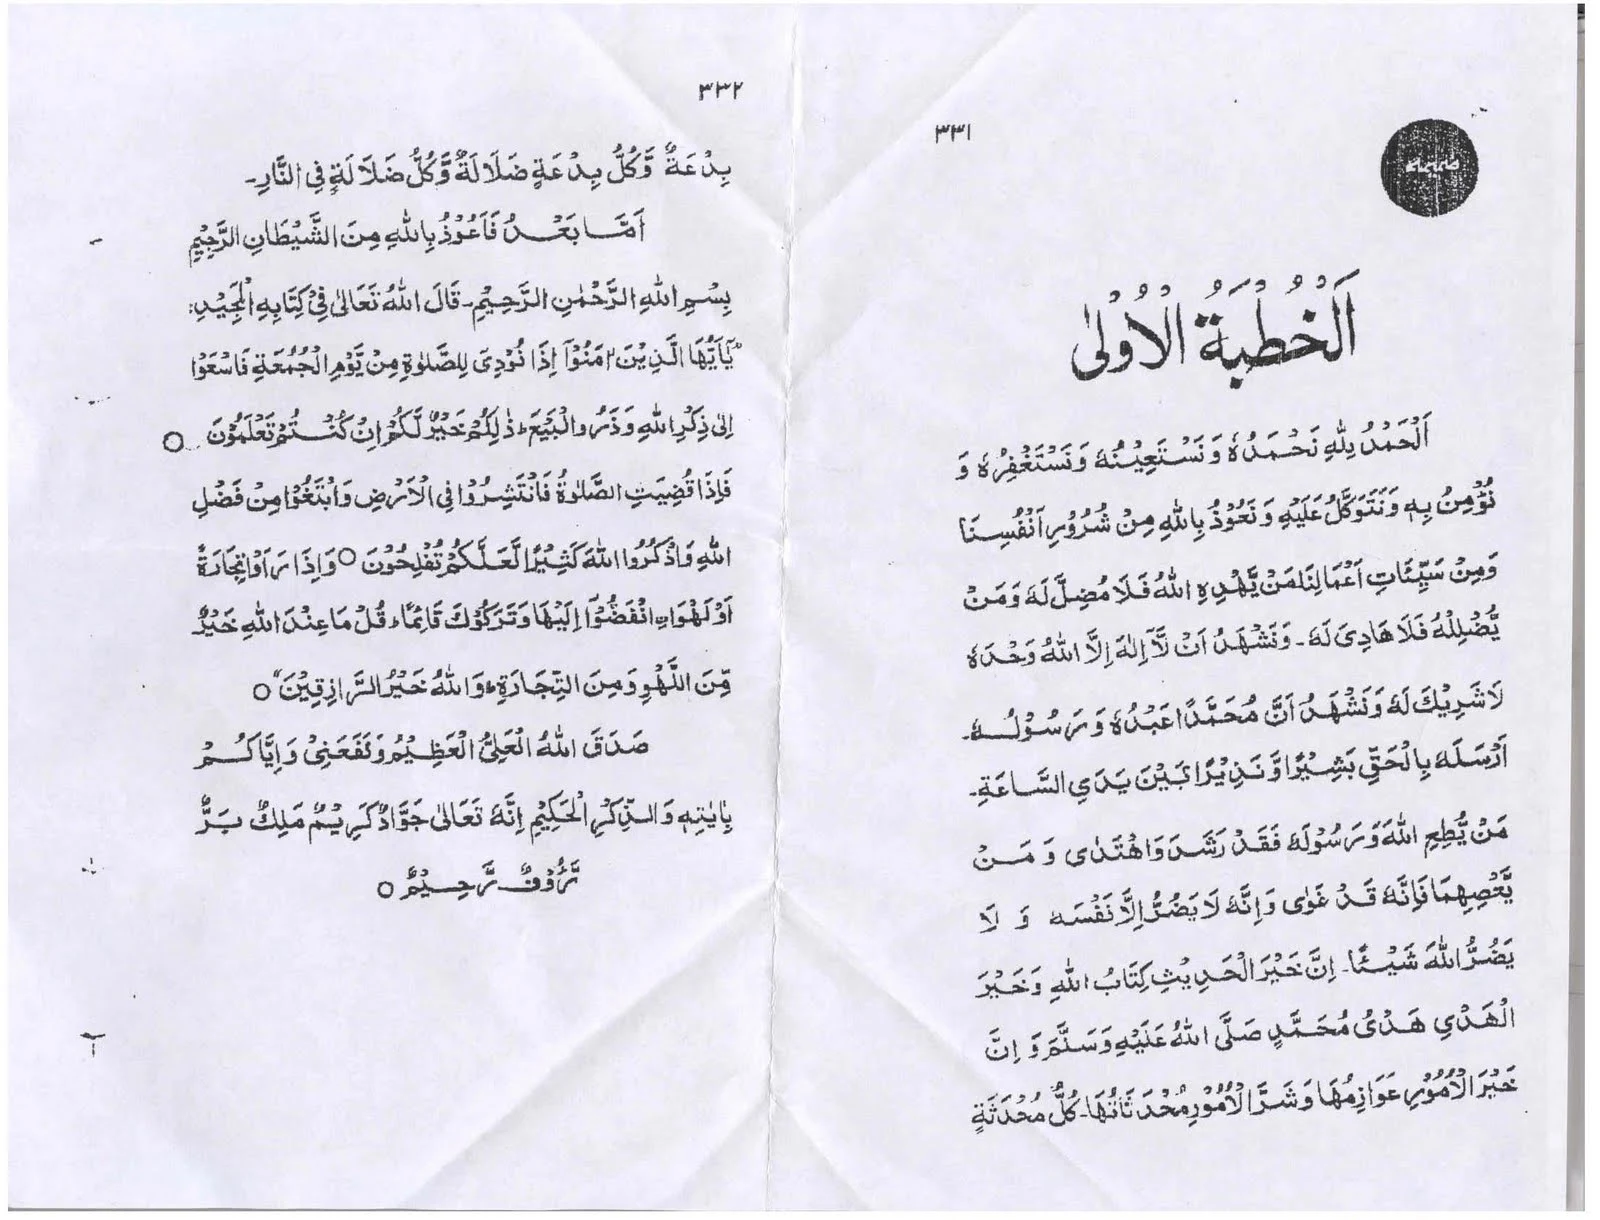 ٣٣١
اَلْخُطْبَةُ الْاُوْلٰى
اَلْحَمْدُ لِلّٰهِ نَحْمَدُهٗ وَنَسْتَعِيْنُهٗ وَنَسْتَغْفِرُهٗ وَ
نُؤْمِنُ بِهٖ وَنَتَوَكَّلُ عَلَيْهِ وَنَعُوْذُ بِاللّٰهِ مِنْ شُرُوْرِ اَنْفُسِنَا
وَمِنْ سَيِّئَاتِ اَعْمَالِنَا مَنْ يَّهْدِهِ اللّٰهُ فَلَا مُضِلَّ لَهٗ وَمَنْ
يُّضْلِلْهُ فَلَا هَادِىَ لَهٗ ـ وَنَشْهَدُ اَنْ لَّآ اِلٰهَ اِلَّا اللّٰهُ وَحْدَهٗ
لَا شَرِيْكَ لَهٗ وَنَشْهَدُ اَنَّ مُحَمَّدًا عَبْدُهٗ وَرَسُوْلُهٗ ـ
اَرْسَلَهٗ بِالْحَقِّ بَشِيْرًا وَّنَذِيْرًا بَيْنَ يَدَيِ السَّاعَةِ ـ
مَنْ يُّطِعِ اللّٰهَ وَرَسُوْلَهٗ فَقَدْ رَشَدَ وَاهْتَدٰى وَمَنْ
يَّعْصِهِمَا فَاِنَّهٗ قَدْ غَوٰى وَاِنَّهٗ لَا يَضُرُّ اِلَّا نَفْسَهٗ وَلَا
يَضُرُّ اللّٰهَ شَيْئًا ـ اِنَّ خَيْرَ الْحَدِيْثِ كِتَابُ اللّٰهِ وَخَيْرَ
الْهَدْيِ هَدْىُ مُحَمَّدٍ صَلَّى اللّٰهُ عَلَيْهِ وَسَلَّمَ وَاِنَّ
خَيْرَ الْاُمُوْرِ عَوَازِمُهَا وَشَرَّ الْاُمُوْرِ مُحْدَثَاتُهَا ـ كُلُّ مُحْدَثَةٍ
٣٣٢
بِدْعَةٌ وَّكُلُّ بِدْعَةٍ ضَلَالَةٌ وَّكُلُّ ضَلَالَةٍ فِى النَّارِ ـ
اَمَّا بَعْدُ فَاَعُوْذُ بِاللّٰهِ مِنَ الشَّيْطَانِ الرَّجِيْمِ
بِسْمِ اللّٰهِ الرَّحْمٰنِ الرَّحِيْمِ ـ قَالَ اللّٰهُ تَعَالٰى فِىْ كِتَابِهِ الْمَجِيْدِ:
"يٰٓاَيُّهَا الَّذِيْنَ اٰمَنُوْٓا اِذَا نُوْدِىَ لِلصَّلٰوةِ مِنْ يَّوْمِ الْجُمُعَةِ فَاسْعَوْا
اِلٰى ذِكْرِ اللّٰهِ وَذَرُوا الْبَيْعَ ؕ ذٰلِكُمْ خَيْرٌ لَّكُمْ اِنْ كُنْتُمْ تَعْلَمُوْنَ ○
فَاِذَا قُضِيَتِ الصَّلٰوةُ فَانْتَشِرُوْا فِى الْاَرْضِ وَابْتَغُوْا مِنْ فَضْلِ
اللّٰهِ وَاذْكُرُوا اللّٰهَ كَثِيْرًا لَّعَلَّكُمْ تُفْلِحُوْنَ ○ وَاِذَا رَاَوْا تِجَارَةً
اَوْ لَهْوَا۟ انْفَضُّوْٓا اِلَيْهَا وَتَرَكُوْكَ قَآئِمًا ؕ قُلْ مَا عِنْدَ اللّٰهِ خَيْرٌ
مِّنَ اللَّهْوِ وَمِنَ التِّجَارَةِ ؕ وَاللّٰهُ خَيْرُ الرَّازِقِيْنَ" ○
صَدَقَ اللّٰهُ الْعَلِىُّ الْعَظِيْمُ وَنَفَعَنِىْ وَاِيَّاكُمْ
بِاٰيٰتِهٖ وَالذِّكْرِ الْحَكِيْمِ اِنَّهٗ تَعَالٰى جَوَّادٌ كَرِيْمٌ مَلِكٌ بَرٌّ
رَّءُوْفٌ رَّحِيْمٌ ○